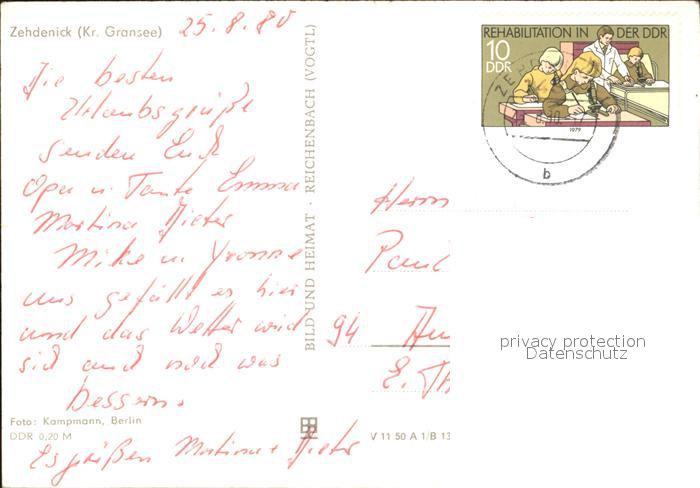 Zehdenick (Kr. Gransee) 25.8.80
Die besten
Urlaubsgrüße
senden Euch
Opa u. Tante Emma
Martina Dieter
Mike u. Yvonne
uns gefällt es hier
und das Wetter wird
sich auch noch was
bessern.
Es grüßen Martina + Dieter
Foto: Kampmann, Berlin
DDR 0,20 M
BILD UND HEIMAT · REICHENBACH (VOGTL)
V 11 50 A 1/B 13
REHABILITATION IN DER DDR
10
DDR
1979
b
Herrn
Paul
94
E. Th
privacy protection
Datenschutz